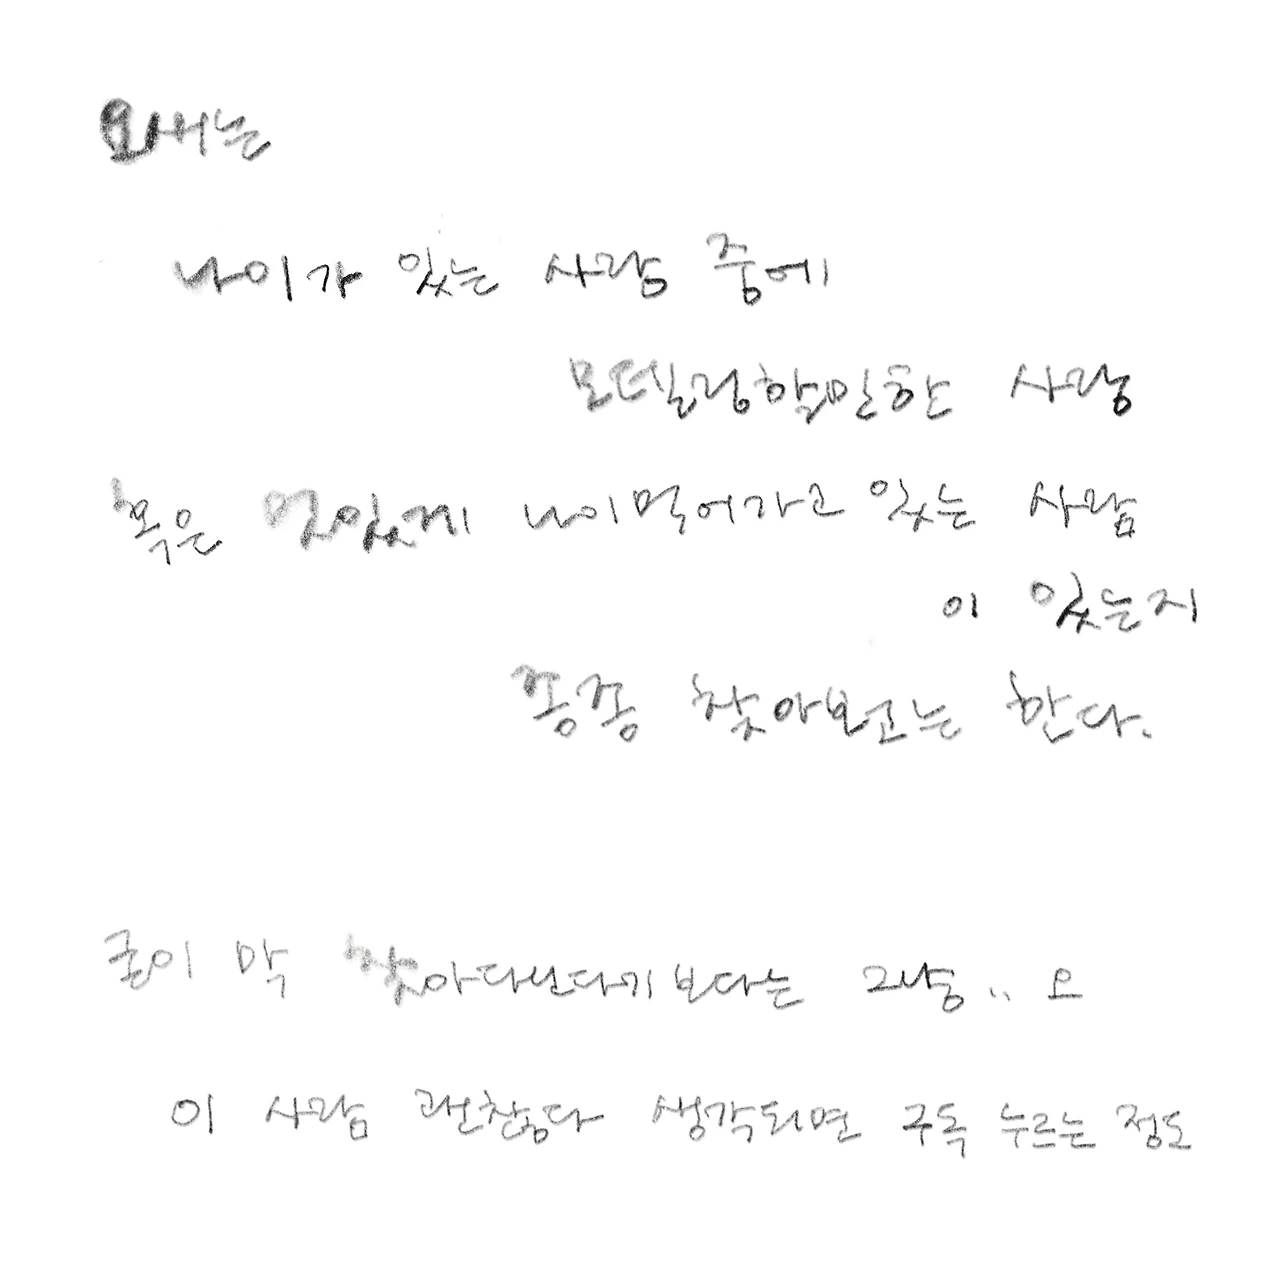 요새는
나이가 있는 사람 중에
모델링할만한 사람
혹은 멋있게 나이먹어가고 있는 사람
이 있는지
종종 찾아보고는 한다.
굳이 막 찾아다닌다기보다는 그냥.. 오
이 사람 괜찮다 생각되면 구독 누르는 정도